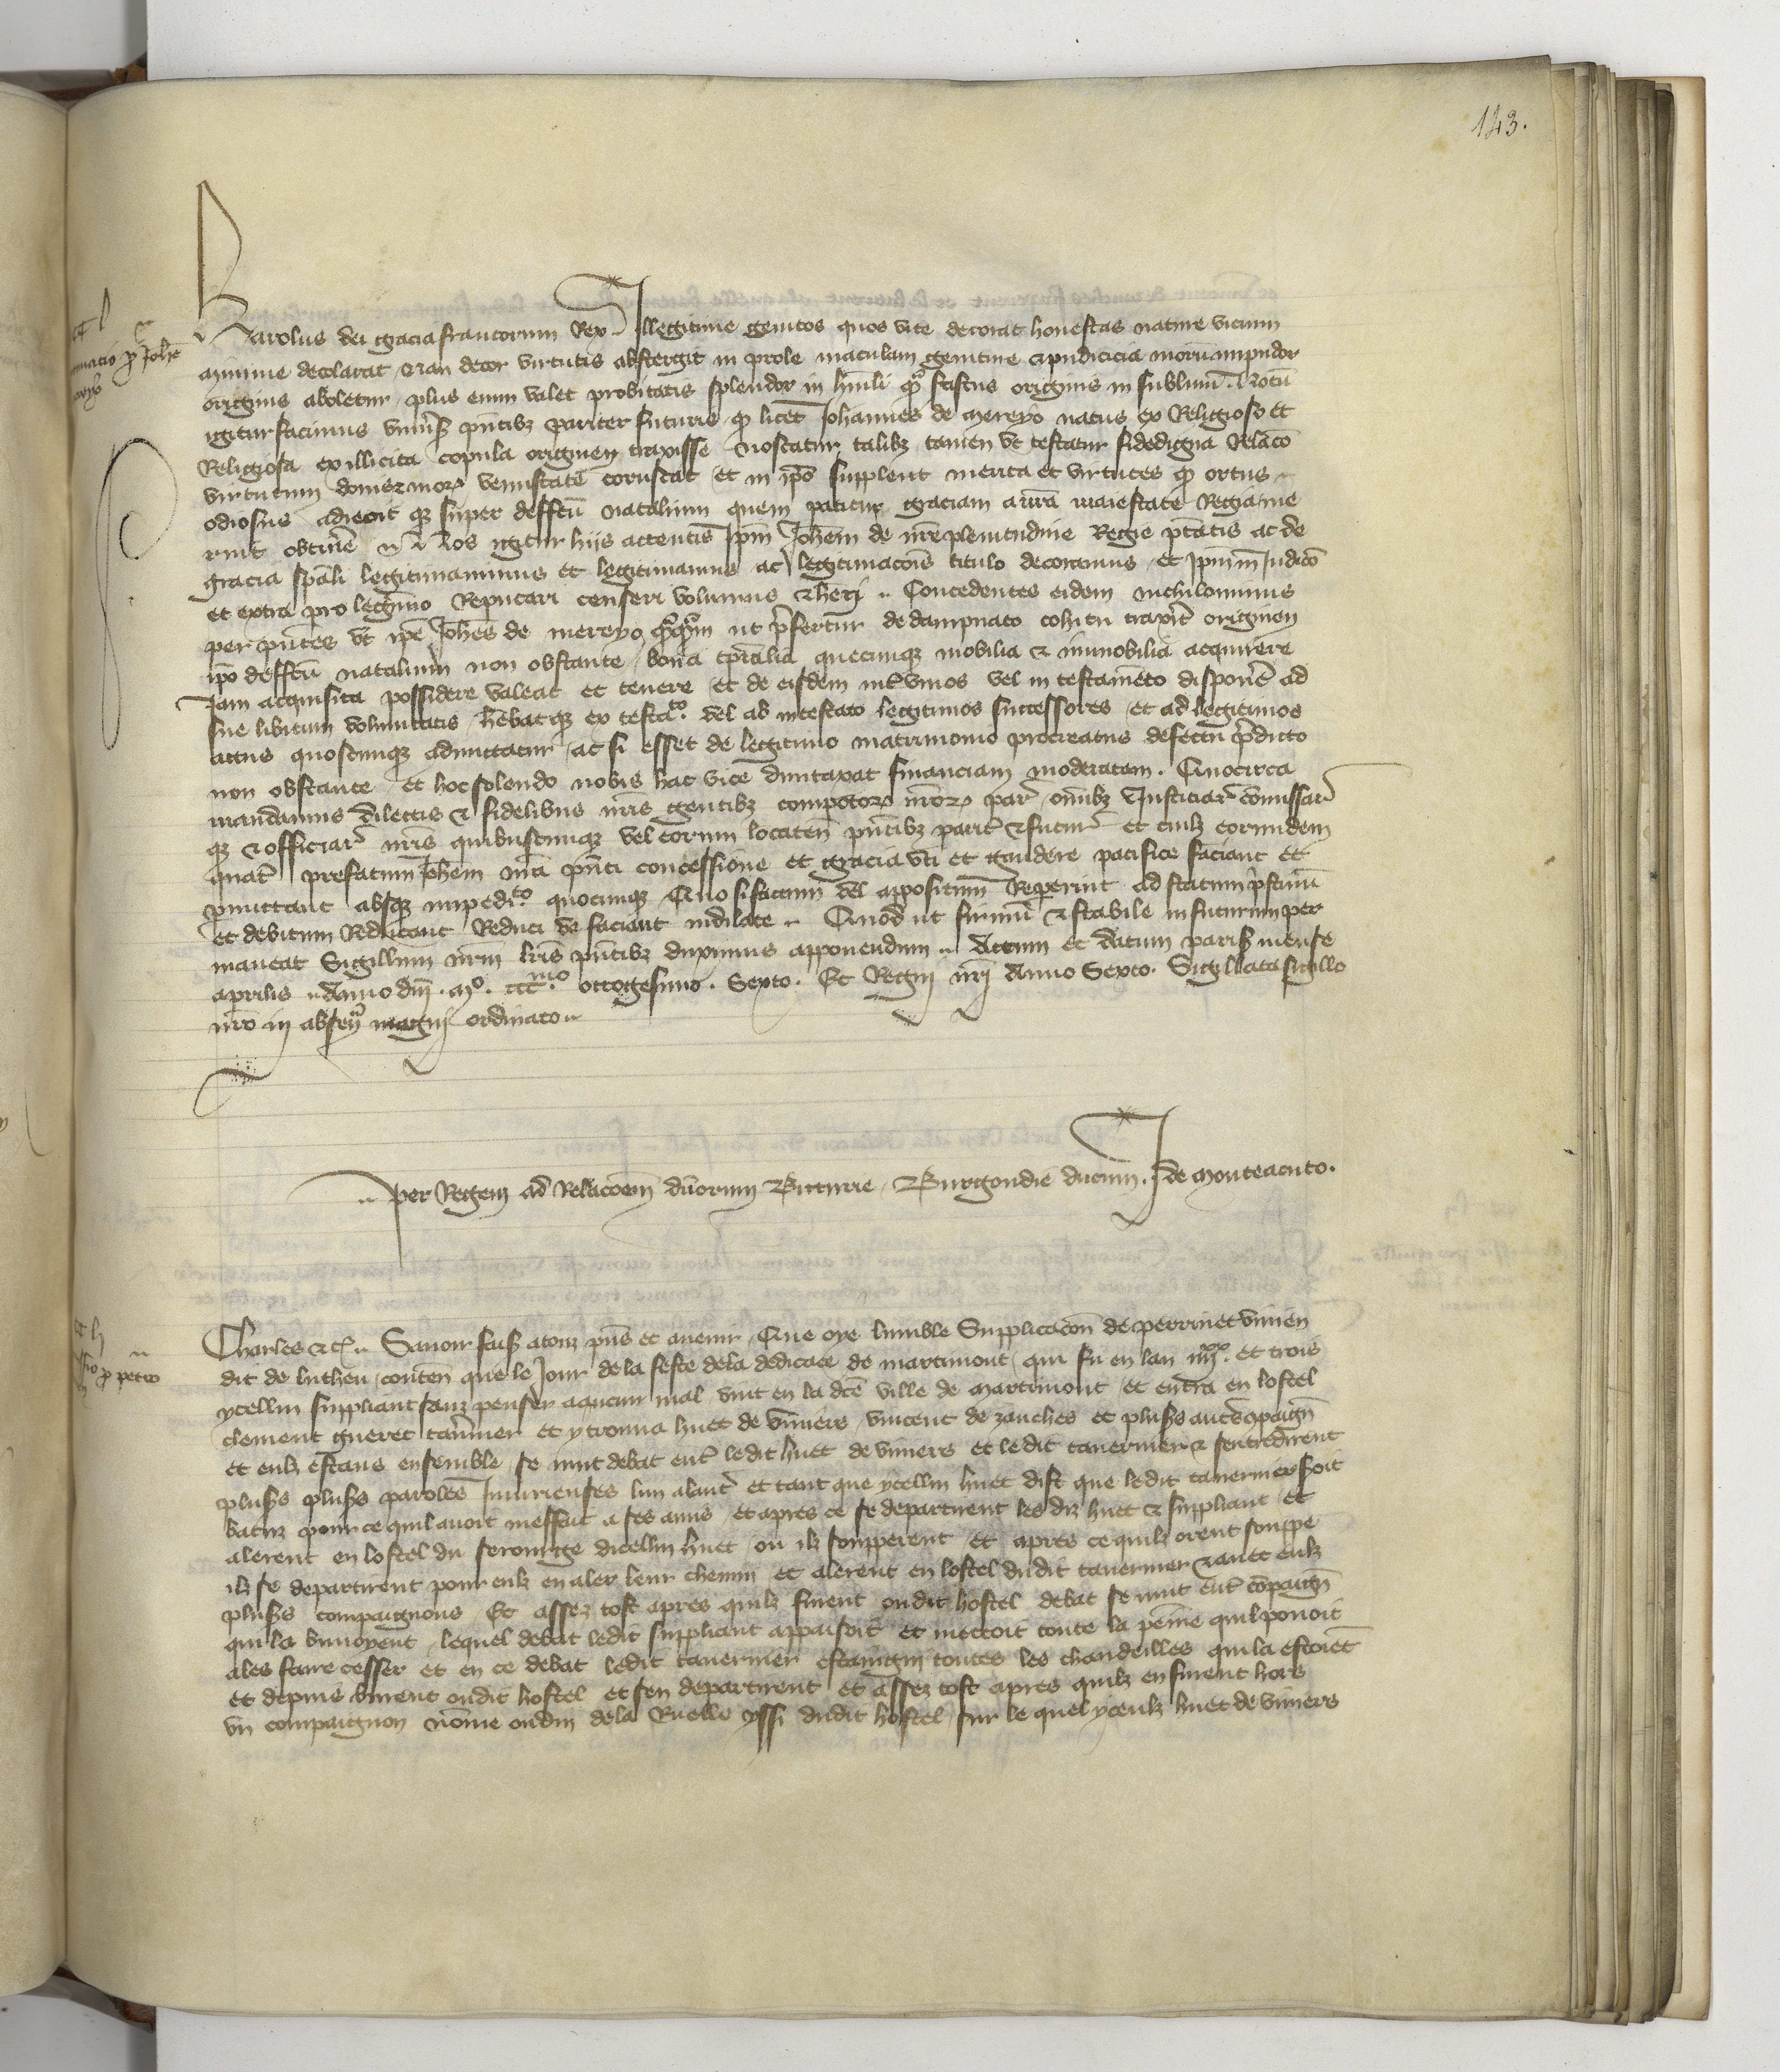 143.
Karolus dei gracia francorum Rex Illegitime genitos quos vite decorat honestas nature vicium
minime decolarat nam decor virtutis abstergit in prole maculam geniture & pudicicia morum impudor
originis aboletur plus enim valet probitatis splendor in humili quam fastus originis in sublimi. Notum
igitur facimus univers pntibz pariter futuris q licet Johannes de mereyo natus ex Religioso et
Religiosa ex illicita copula originem traxisse noscatur talibz tamen ut testatur fidedigna Relaco
virtutum donis & mor venustate coruscat et in ipo supplent merita et virtutes q ortus
odiosus adiecit qz super deffectu natalium quem patitur graciam a nra maiestate Regia me
ruit obtinere Nos igitur hijs attentis Ipm Johem de nre plenitudine Regie ptatis ac de
gracia spali legitimavimus et legitimamus ac legitimacois titulo decoramus et Ipm in Iudico
et extra pro legitimo Reputari censeri volumus & heri Concedentes eidem nichilominus
per pntes ut ipe Johes de mereyo qqm ut pfertur de dampnato cohitu traxit originem
ipo deffectu natalium non obstante bona tpralia quecumqz mobilia & inmobilia acquirere
Jam acquisita possidere valeat et tenere et de eisdem int vivos vel in testamento disponere ad
sue libitum voluntatis hebatqz ex testato. vel ab intestato legitimos successores et ad legitimos
actus quoscumqz admittatur ac si esset de legitimo matrimonio procreatus defectu pdicto
non obstante et hoc solvendo nobis hac vice dumtaxat financiam moderatam. Quocirca
mandamus dilectis & fidelibus nris gentibz compotor nror par omibz Justiciar comissar
qz & officiar nris quibuscumqz vel eorum locaten pntibz parit & futur et cuilz eorumdem
quat prefatum Johem nra pnti concessione et gracia uti et gaudere pacifice faciant et
pmittant absqz impedito quocumqz Quo si factum vel appositum Reperint ad statum pstinu
et debitum Reducant Reduci ve faciant indilate Quod ut firmum & stabile in futurum per
maneat Sigillum nrm lris pntibz duximus apponendum Actum et datum parisz mense
aprilis Anno dni mo. ccc.mo octogesimo. Sexto. Et Regni nri Anno Sexto. Sigillata sigillo
nro in absencia magni ordinato
per Regem ad Relacoem dnorum Biturie, Burgondie ducum. J de monteacuto.
Charles &c Savoir faisz a touz pns et avenir Que oye lumble Supplicacon de perrinet vivien
dit de lutheu conten que le Jour de la feste de la dedicace de martimont qui fu en lan iiiixx. et trois
ycellui suppliant sanz penser a aucun mal vint en la dce ville de martimont et entra en lostel
clement gueret tavnier et y trouva huet de vimers, vincent de zanches et plusrs autres compaign
et eulz estans ensemble se mut debat ent ledit huet de vimers et le dit tavernier & sentredirent
plusrs plusrs paroles Injurieuses lun a laut et tant que ycellui huet dist que le dit tavernier seroit
batuz pour ce quil avoit meffait a ses amis et apres ce se departirent les diz huet & suppliant et
alerent en lostel du serourge dicellui huet ou ilz soupperent et apres ce quilz orent souppe
ilz se departirent pour eulz en aler leur chemin et alerent en lostel dudit tavernier & avec eulz
plusrs compaignons Et assez tost apres quilz furent oudit hostel debat se mut ent compaign
qui la buvoyent lequel debat ledit suppliant appaisoit et mettoit toute la peine quil povoit
a les faire cesser et en ce debat ledit tavernier estaingni toutes les chandeilles qui la estoiet
et depuis burent oudit hostel et sen departirent et assez tost apres quilz en furent hors
un compaignon nome oudin de la Ruelle yssi dudit hostel sur le quel yceulz huet de vimers